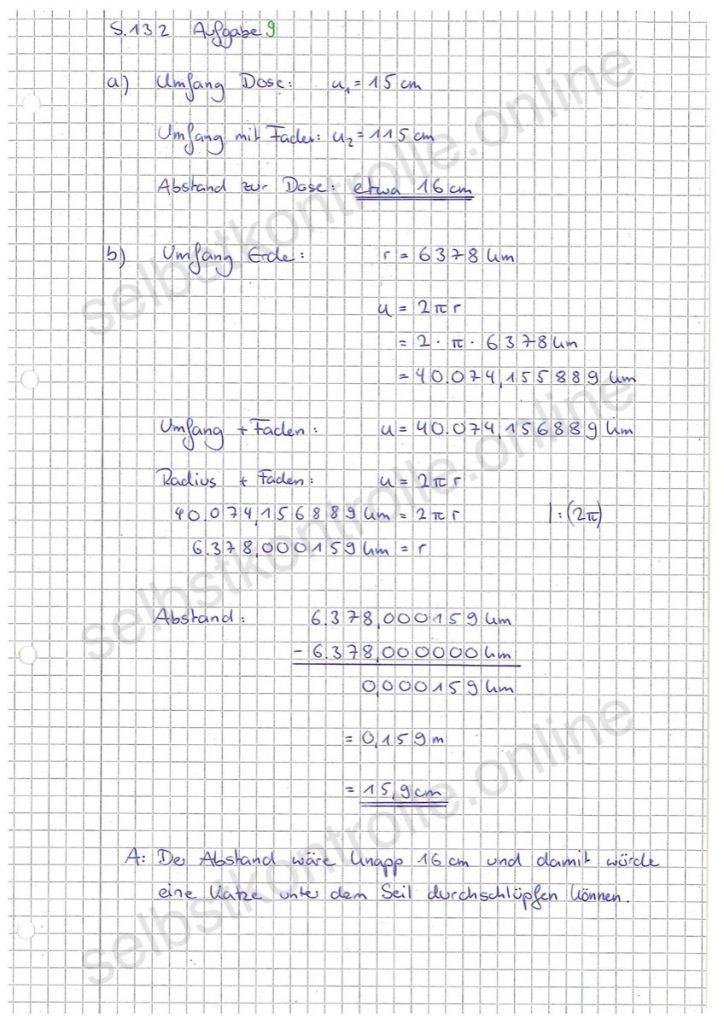 S.132 Aufgabe 9
a) Umfang Dose: u₁ = 15 cm
Umfang mit Faden: u₂ = 115 cm
Abstand zur Dose: etwa 16 cm
b) Umfang Erde: r = 6378 km
u = 2πr
= 2 · π · 6378 km
= 40.074,155889 km
Umfang + Faden: u = 40.074,156889 km
Radius + Faden: u = 2πr
40.074,156889 km = 2πr |:(2π)
6.378,000159 km = r
Abstand: 6.378,000159 km
- 6.378,000000 km
0,000159 km
= 0,159 m
= 15,9 cm
A: Der Abstand wäre knapp 16 cm und damit würde
eine Katze unter dem Seil durchschlüpfen können.
selbstkontrolle.online
selbstkontrolle.online
selbstkontrolle.online